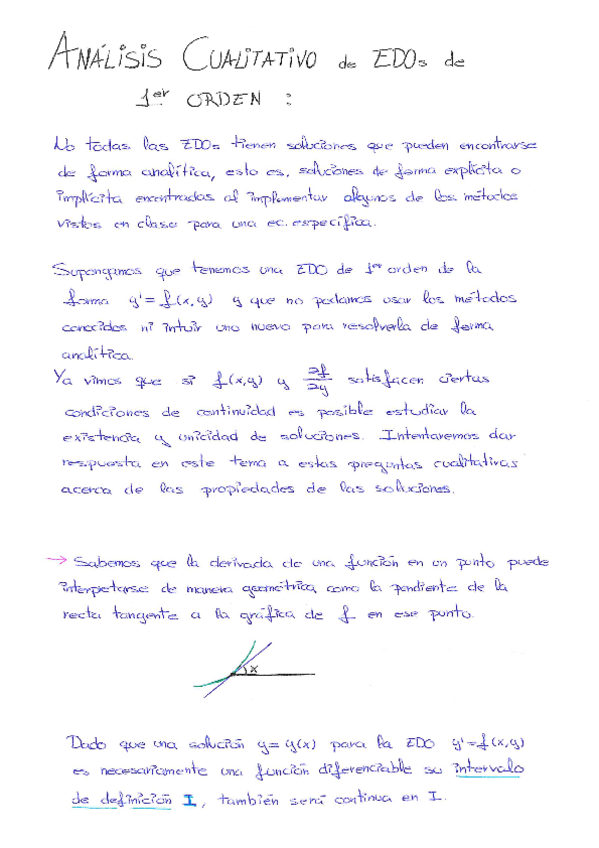 ANÁLISIS CUALITATIVO de EDOs de
1er ORDEN :
No todas las EDOs tienen soluciones que pueden encontrarse
de forma analítica, esto es, soluciones de forma explícita o
implícita encontradas al implementar algunos de los métodos
vistos en clase para una ec. específica.
Supongamos que tenemos una EDO de 1er orden de la
forma y' = f(x,y) y que no podamos usar los métodos
conocidos ni intuir uno nuevo para resolverla de forma
analítica.
Ya vimos que si f(x,y) y ∂f/∂y satisfacen ciertas
condiciones de continuidad es posible estudiar la
existencia y unicidad de soluciones. Intentaremos dar
respuesta en este tema a estas preguntas cualitativas
acerca de las propiedades de las soluciones.
→ Sabemos que la derivada de una función en un punto puede
interpretarse de manera geométrica, como la pendiente de la
recta tangente a la gráfica de f en ese punto.
Dado que una solución y = y(x) para la EDO y' = f(x,y)
es necesariamente una función diferenciable su intervalo
de definición I, también será continua en I.